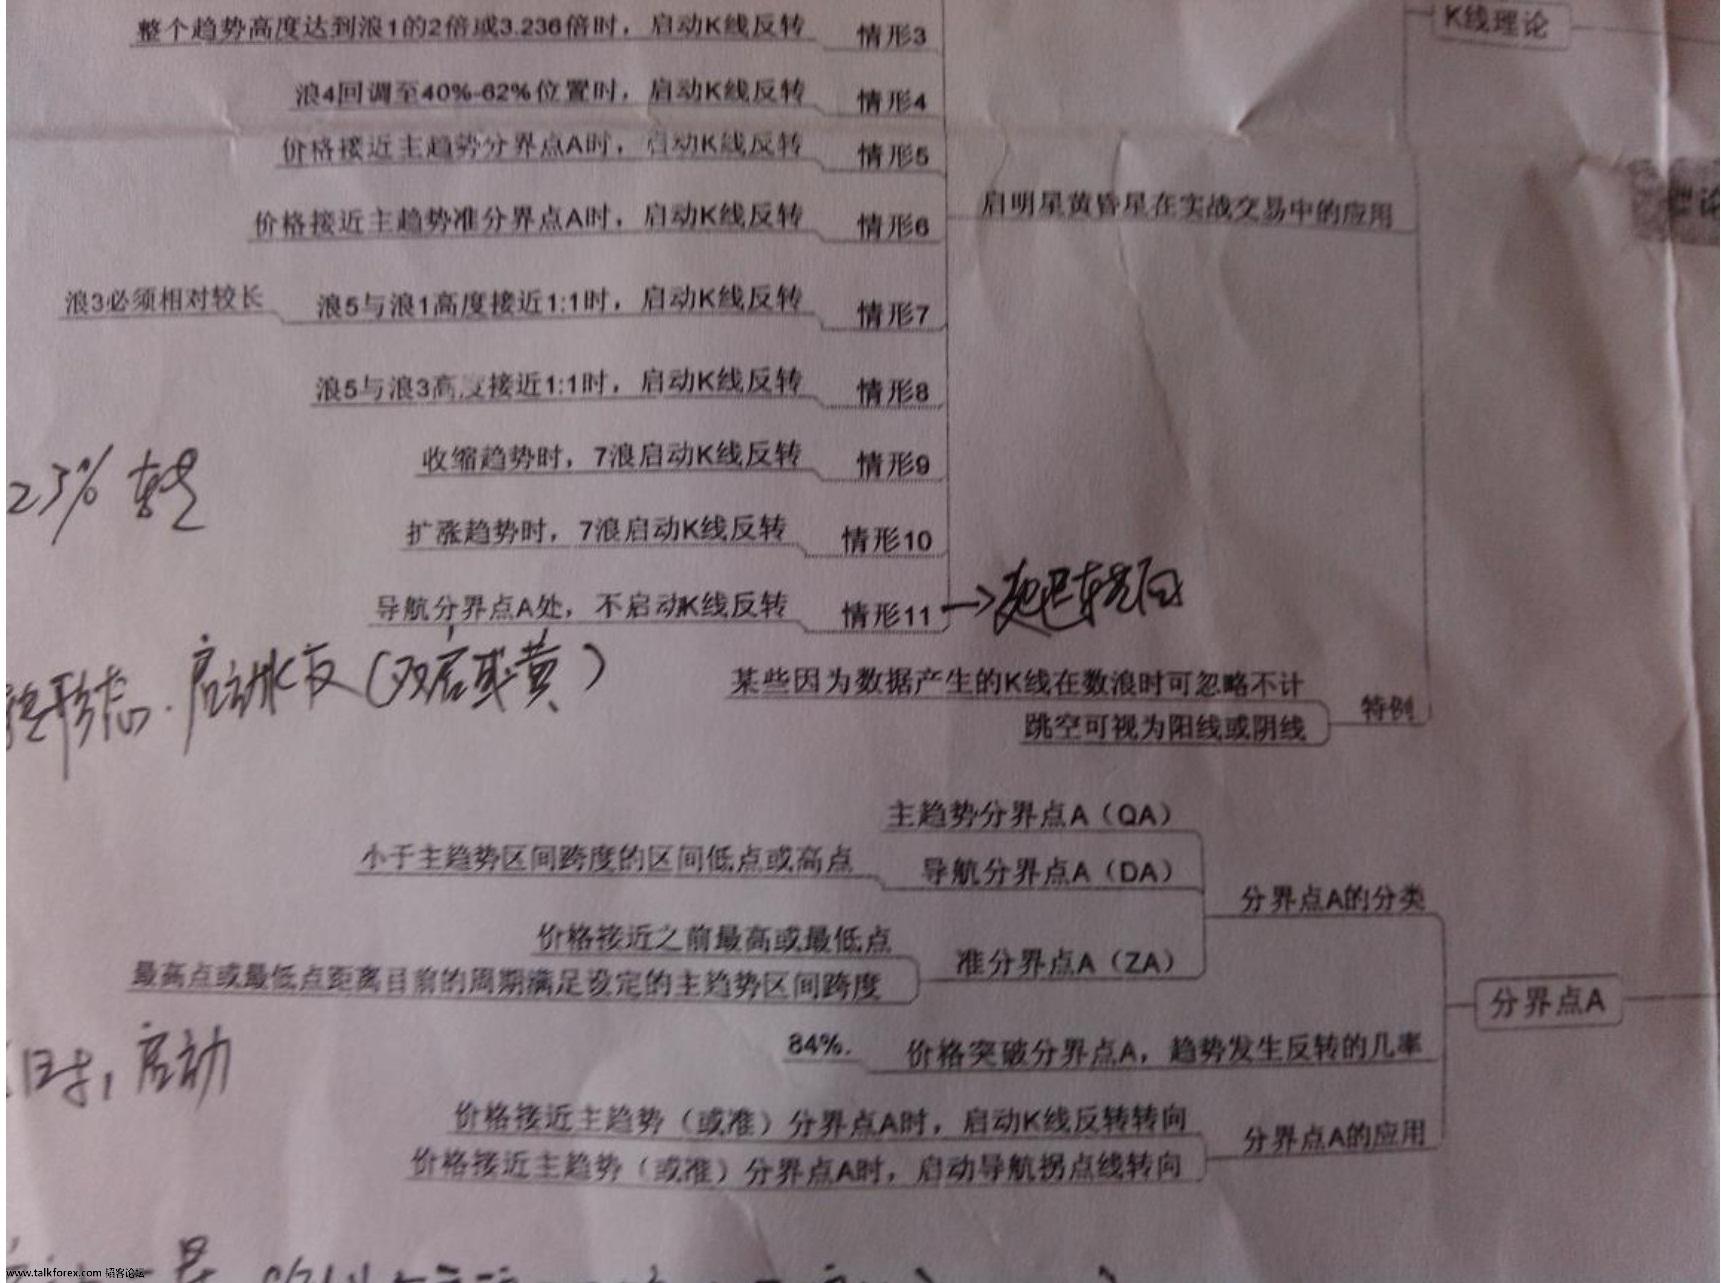 K线理论
整个趋势高度达到浪1的2倍或3.236倍时，启动K线反转 情形3
浪4回调至40%-62%位置时，启动K线反转 情形4
价格接近主趋势分界点A时，启动K线反转 情形5
价格接近主趋势准分界点A时，启动K线反转 情形6
启明星黄昏星在实战交易中的应用
理论
浪3必须相对较长 浪5与浪1高度接近1:1时，启动K线反转 情形7
浪5与浪3高度接近1:1时，启动K线反转 情形8
收缩趋势时，7浪启动K线反转 情形9
23%
扩涨趋势时，7浪启动K线反转 情形10
导航分界点A处，不启动K线反转 情形11
形态.启动K反（双启或黄）
某些因为数据产生的K线在数浪时可忽略不计
跳空可视为阳线或阴线
特例
主趋势分界点A（QA）
小于主趋势区间跨度的区间低点或高点 导航分界点A（DA）
分界点A的分类
价格接近之前最高或最低点
最高点或最低点距离目前的周期满足设定的主趋势区间跨度
准分界点A（ZA）
分界点A
84%. 价格突破分界点A，趋势发生反转的几率
时，启动
价格接近主趋势（或准）分界点A时，启动K线反转转向
价格接近主趋势（或准）分界点A时，启动导航拐点线转向
分界点A的应用
www.talkforex.com 韬客论坛